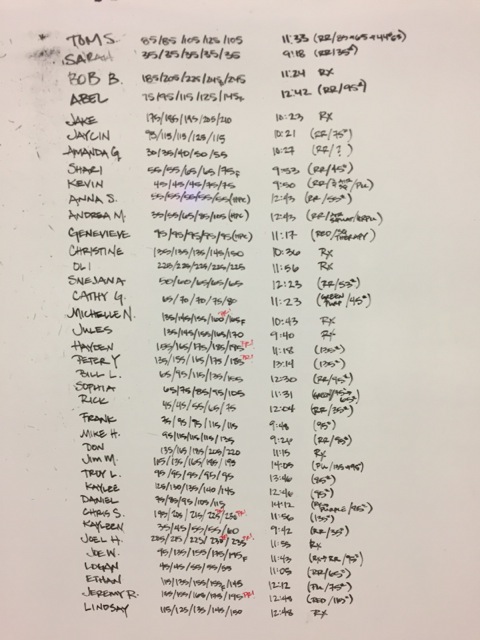 TOM S. 85/85/105/125/105 11:33 (RR/85#+65+44#63)
SARAH 35/35/35/35/35 9:18 (RR/35#)
BOB B. 185/205/225/245F/245 11:24 RX
ABEL 75/95/115/125/145F 12:42 (RR/95#)
JAKE 175/185/195/205/210 10:23 RX
JAYLIN 95/115/115/125/115 10:21 (RR/75#)
AMANDA G. 30/35/40/50/55 10:27 (RR/?)
SHARI 55/55/65/65/75F 9:53 (RR/45#)
KEVIN 45/45/45/75/75 9:50
ANNA S. 55/55/55/55/55 (HPC) 12:43 (RR/55#)
ANDREA M. 35/55/65/85/105 (HPC) 12:43
GENEVIEVE 95/95/95/95/95 (HPC) 11:17
CHRISTINE 135/135/135/145/150 10:36 RX
OLI 225/225/225/225/225 11:56 RX
SNEJANA 50/60/65/65/65 12:23 (RR/53#)
CATHY G. 65/70/70/75/80 11:23
MICHELLE N. 135/145/155/160/165F 10:43 RX
JULES 135/145/155/165/170 9:40 RX
HAYDEN 155/165/175/185/195 PR! 11:18 (135#)
PETER Y 135/155/165/175/185 PR! 13:14 (135#)
BILL L. 65/95/115/135/155 12:30 (RR/95#)
SOPHIA 65/75/85/95/105 11:31
RICK 45/45/55/65/75 12:04 (RR/35#)
FRANK 75/95/95/115/115 9:48 (95#)
MIKE H. 95/115/115/115/135 9:24 (RR/95#)
DON 135/165/185/205/220 11:15 RX
JIM M. 115/135/165/185/195 14:05
TROY L. 95/95/95/95/95 13:46 (85#)
KAYLEE 125/130/135/140/145 12:46 (95#)
DANIEL 75/85/95/105/115 14:12
CHRIS S. 195/205/215/225/235 PR! 11:56 (135#)
KAYLEEN 35/45/55/55/60 9:42 (RR/35#)
JOEL H. 205/215/225/235/235 PR! 11:55 RX
JOE W. 95/135/155/175/195F 11:43 (RX+RR/95#)
LOGAN 45/45/55/55/55 11:05 (RR/65#)
ETHAN 115/135/155/155F/145 12:12 (PU/75#)
JEREMY R. 165/155/165/175/195 PR! 12:48 (RED/115#)
LINDSAY 115/125/135/145/150 12:48 RX